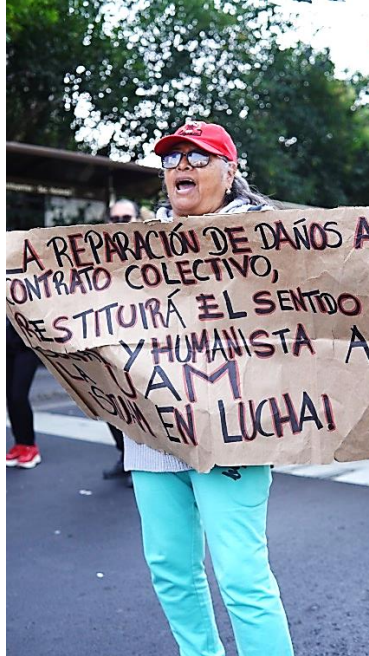 LA REPARACIÓN DE DAÑOS A
CONTRATO COLECTIVO,
RESTITUIRÁ EL SENTIDO
Y HUMANISTA A
LA UAM
¡SITUAM EN LUCHA!